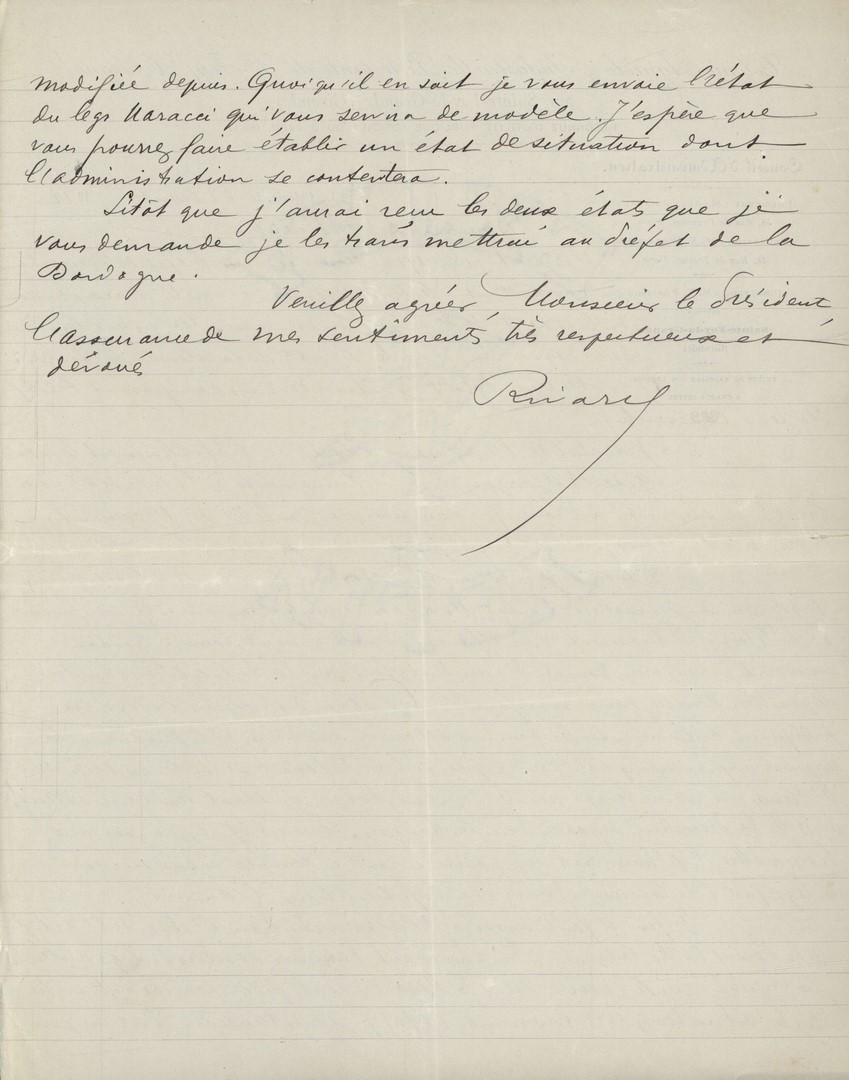 modifiée depuis. Quoiqu'il en soit je vous envoie l'état
du legs Maracci qui vous servira de modèle. J'espère que
vous pourrez faire établir un état de situation dont
l'administration se contentera.
Sitôt que j'aurai reçu les deux états que je
vous demande je les transmettrai au Préfet de la
Dordogne.
Veuillez agréer, Monsieur le Président,
l'assurance de mes sentiments très respectueux et
dévoués